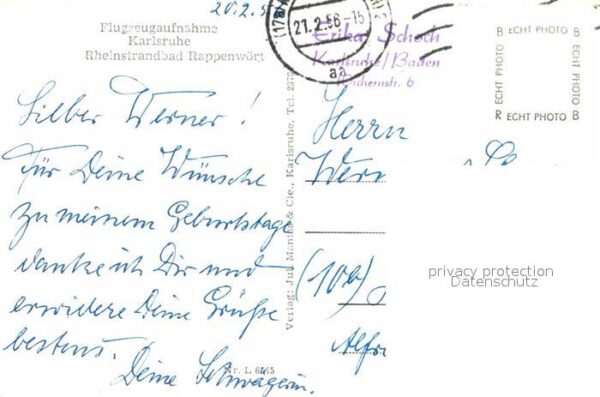 20.2.5
Flugzeugaufnahme
Karlsruhe
Rheinstrandbad Rappenwört
21.2.56-15
aa
Erika Schoch
Karlsruhe/Baden
Wichernstr. 6
B ECHT PHOTO B
ECHT PHOTO
ECHT PHOTO
R ECHT PHOTO B
Lieber Werner!
Für Deine Wünsche
zu meinem Geburtstage
danke ich Dir und
erwidere Deine Grüße
bestens.
Deine Schwägerin.
Nr. L 6545
Karlsruhe, Tel.
Herrn
Wern
(10b)
Alfre
privacy protection
Datenschutz